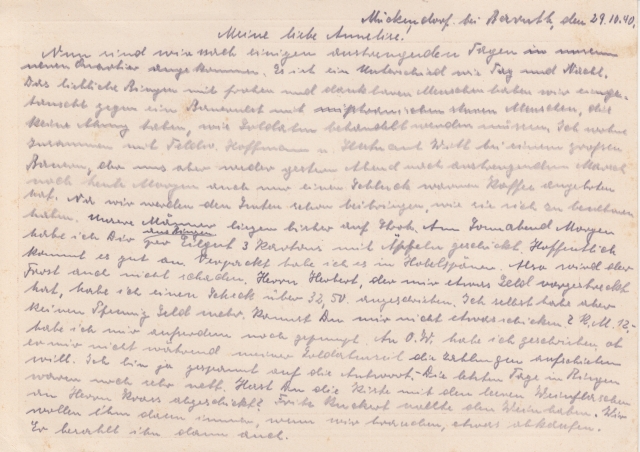 Mückendorf bei Baruth, den 29.10.40.
Meine liebe Annelise!
Nun sind wir nach einigen anstrengenden Tagen in unserem
neuen Quartier angekommen. Es ist ein Unterschied wie Tag und Nacht.
Das liebliche Bingen mit frohen und dankbaren Menschen haben wir einge-
tauscht gegen ein Bauernnest mit Menschen, die
keine Ahnung haben, wie Soldaten behandelt werden müssen. Ich wohne
zusammen mit Feldw. Hoffmann u. bei einem großen
Bauern, der uns aber weder gestern Abend nach anstrengendem Marsch
noch heute Morgen auch nur einen Schluck warmen Kaffee angeboten
hat. Na wir werden den Leuten schon beibringen, wie sie sich zu benehmen
haben. Unsere Männer liegen bisher auf Stroh. Am Sonnabend Morgen
habe ich Dir aus Bingen per Eilgut 3 Kartons mit Äpfeln geschickt. Hoffentlich
kommt es gut an. Verpackt habe ich es in Hobelspänen. Also wird der
Frost auch nicht schaden. Herrn Herbert, der mir etwas Geld vorgestreckt
hat, habe ich einen Scheck über 32,50 angeschrieben. Ich selbst habe aber
keinen Pfennig Geld mehr. Kannst Du mir nicht etwas schicken? R.M. 12,-
habe ich mir außerdem noch gepumpt. An O.W. habe ich geschrieben, ob
er mir nicht während meiner Soldatenzeit die Zahlungen aufschieben
will. Ich bin ja gespannt auf die Antwort. Die letzten Tage in Bingen
waren noch sehr nett. Hast Du die Kiste mit den leeren Weinflaschen
an Herrn Kraus abgeschickt? Fritz wollte den Wein haben. Wir
wollen ihm dann immer, wenn wir brauchen, etwas abkaufen.
Er bezahlt ihn dann auch.